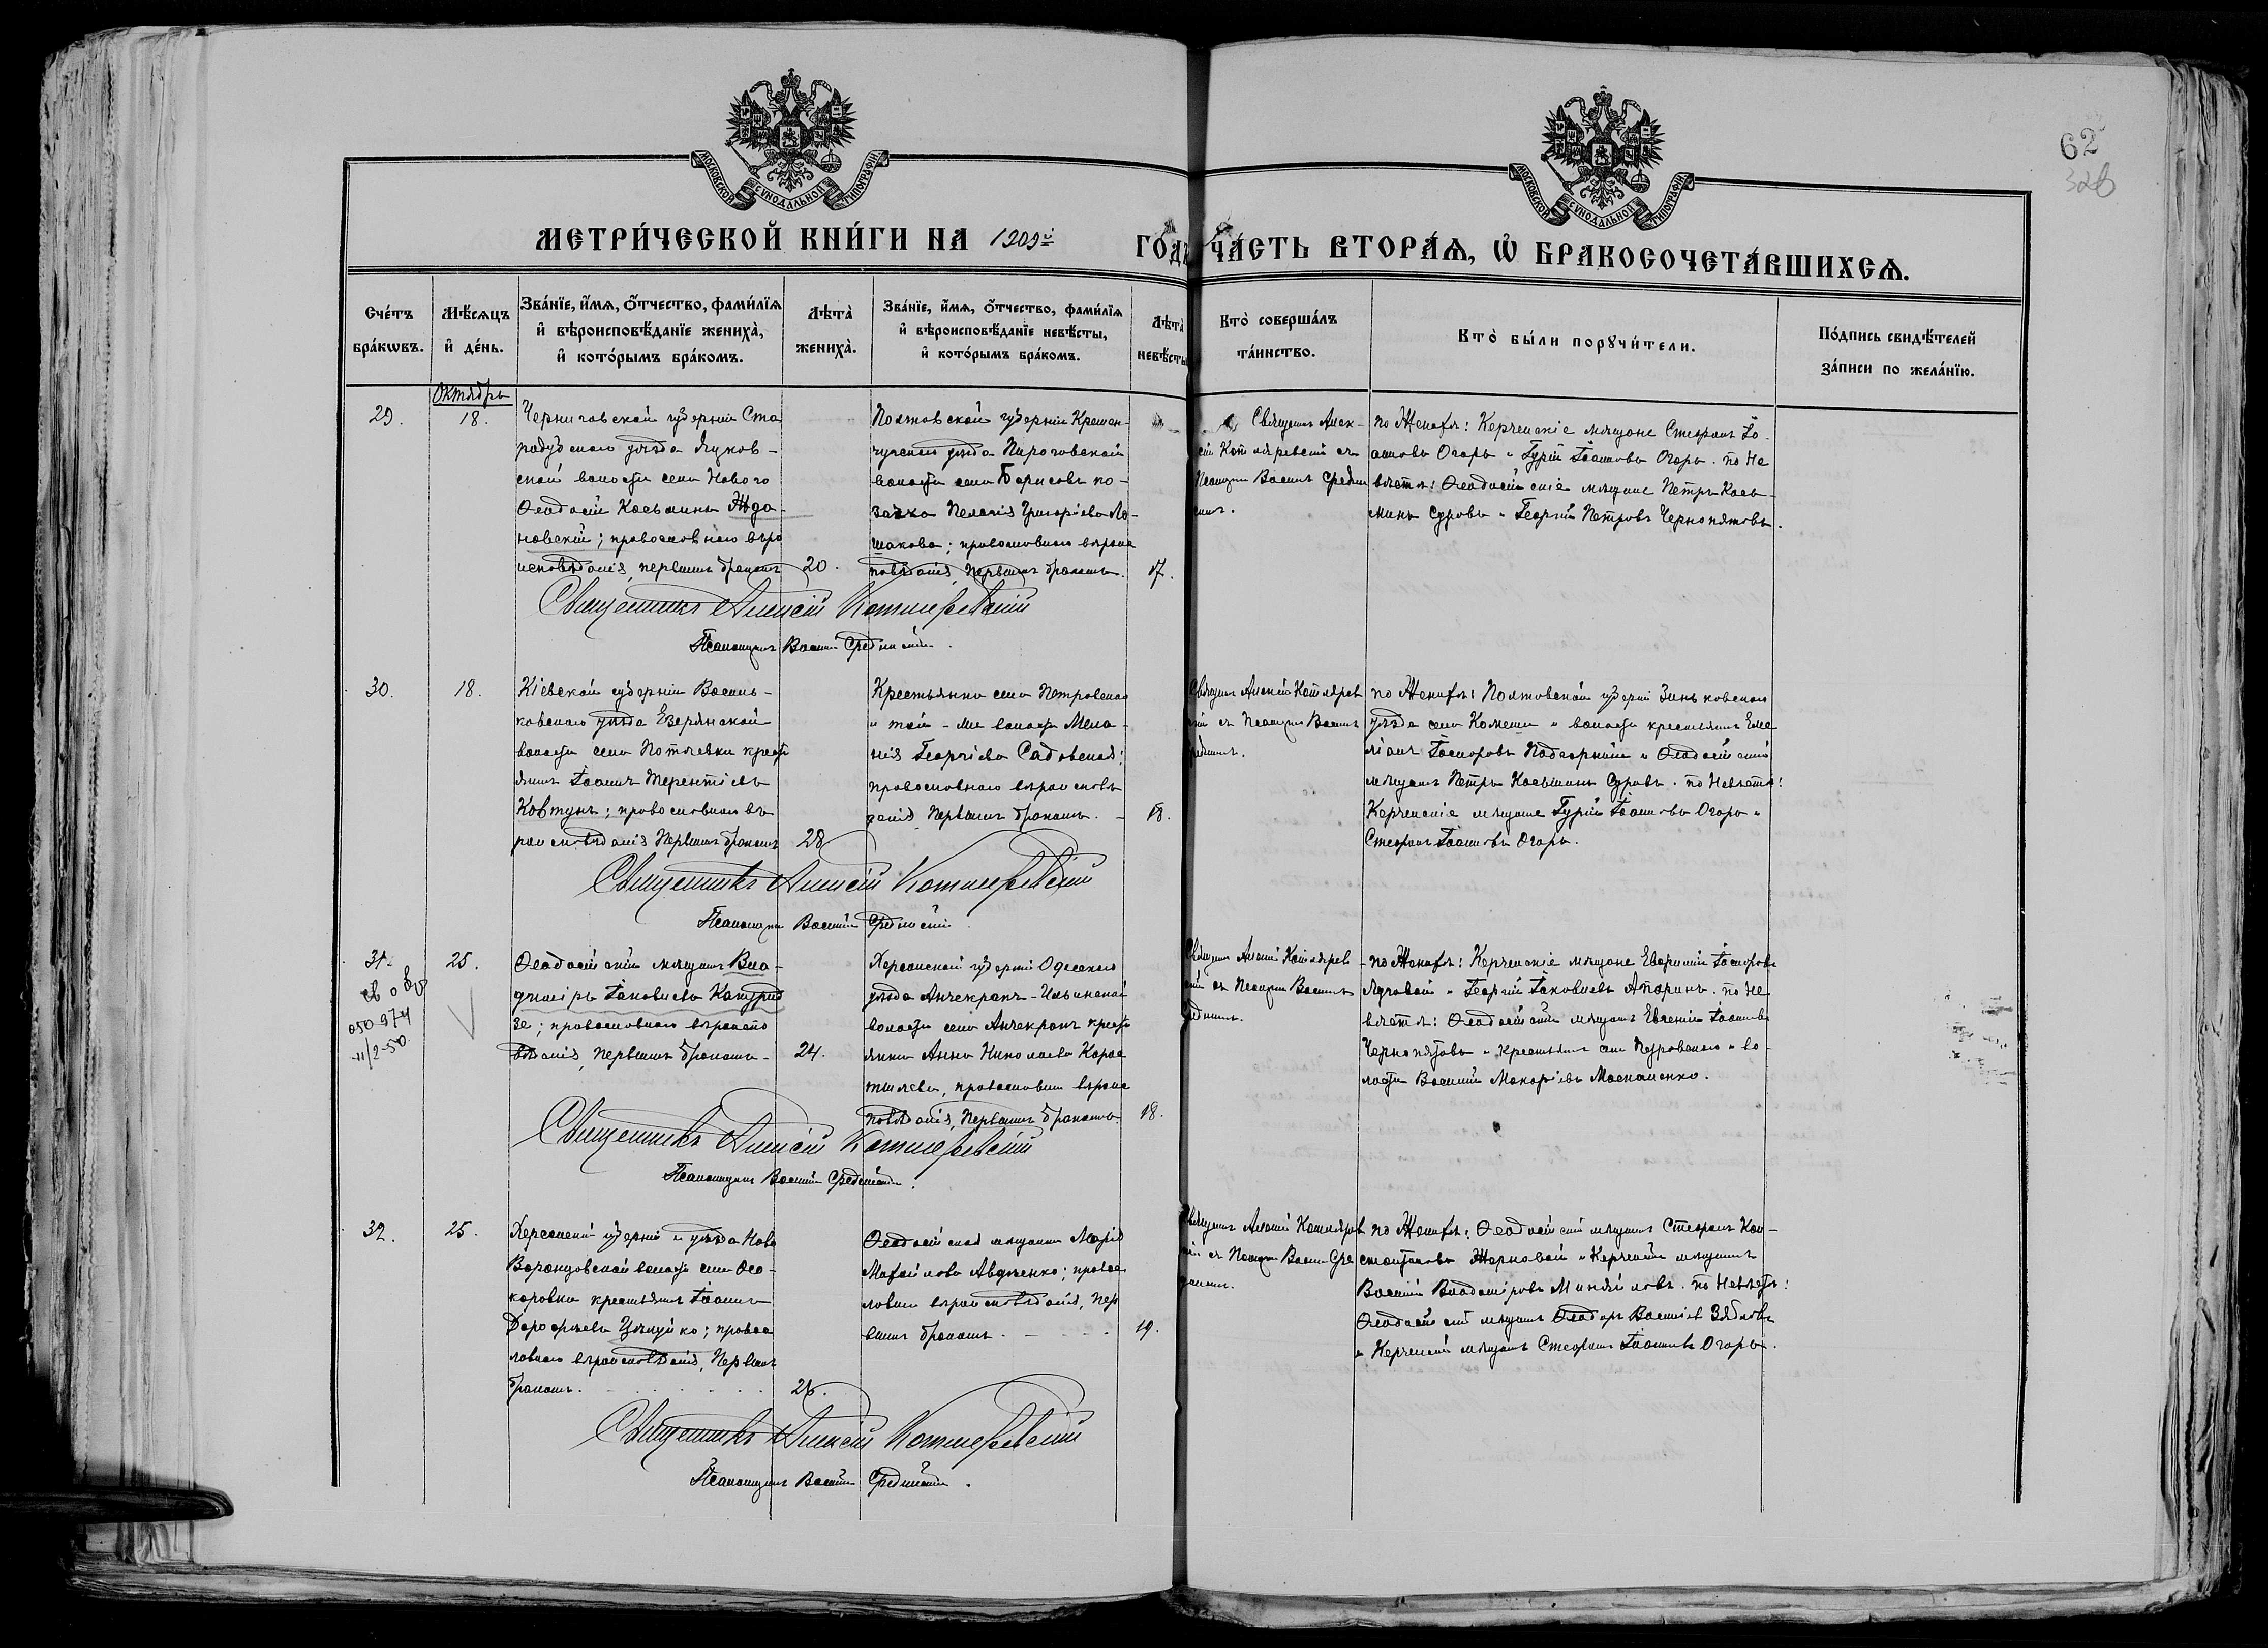 62
326
МОСКОВСКОЙ СУНОДАЛЬНОЙ ТИПОГРАФІИ
МОСКОВСКОЙ СУНОДАЛЬНОЙ ТИПОГРАФІИ
МЕТРИ́ЧЕСКОЙ КНИ́ГИ НА 1909й ГОДЪ ЧА́СТЬ ВТОРА́Ѧ, Ѡ҆ БРАКОСОЧЕТА́ВШИХСѦ.
Сче́тъ бра́кѡвъ.
Мѣ́сѧцъ и҆ де́нь.
Зва́нїе, и҆́мѧ, ѻ҆́тчество, фами́лїѧ и҆ вѣроисповѣ́данїе жениха̀, и҆ кото́рымъ бра́комъ.
Лѣта̀ жениха̀.
Зва́нїе, и҆́мѧ, ѻ҆́тчество, фами́лїѧ и҆ вѣроисповѣ́данїе невѣ́сты, и҆ кото́рымъ бра́комъ.
Лѣта̀ невѣ́сты
Кто̀ соверша́лъ та́инство.
Кто̀ бы́ли порꙋчи́тели.
По́дпись свидѣ́телей за́писи по жела́нїю.
Октябрь
29.
18.
Черниговской губерніи Ста
родубскаго уѣзда Лужков-
ской волости села Новаго
Ѳеодосій Косьминъ Жда-
новскій; православнаго вѣро
исповѣданія, первымъ бракомъ
20.
Полтавской губерніи Кремен-
чугскаго уѣзда Пироговской
волости села Борисовъ ко-
зачка Пелагія Григоріева Ло-
шакова; православнаго вѣроис
повѣданія, первымъ бракомъ.
17.
Священ. Алек-
сій Котляревскій съ
Псаломщ. Василь Средин
скимъ.
По Женихѣ: Керченскіе мѣщане Стефанъ Іо-
анновъ Огарь и Гурій Іоанновъ Огарь. По Не
вѣстѣ: Ѳеодосійскіе мѣщане Петръ Кось-
минъ Суровъ и Георгій Петровъ Чернопятовъ.
Священникъ Алексій Котляревскій
Псаломщикъ Василій Срединскій.
30.
18.
Кіевской губерніи Василь-
ковскаго уѣзда Езерянской
волости села Потіевки кресть
янинъ Іоаннъ Терентіевъ
Ковтунъ; православнаго вѣ
роисповѣданія первымъ бракомъ
28
Крестьянка села Петровскаго
и той-же волости Мела-
нія Георгіева Садовская;
православнаго вѣроисповѣ
данія, первымъ бракомъ. -
18.
Священ. Алексій Котлярев
скій съ Псаломщ. Василь
Средискимъ.
По Женихѣ: Полтавской губерніи Зиньковскаго
уѣзда села Комыши и волости крестьянинъ Еме
ліанъ Іосифовъ Подгорный и Ѳеодосійскій
мѣщанинъ Петръ Косьминъ Суровъ. По Невѣстѣ:
Керченскіе мѣщане Гурій Іоанновъ Огарь и
Стефанъ Іоанновъ Огарь.
Священникъ Алексій Котляревскій
Псаломщикъ Василій Срединскій.
31.
25.
св о бр
050974
11/2-50.
Ѳеодосійскій мѣщанинъ Вла-
диміръ Іаковлевъ
зе; православнаго вѣроиспо
вѣданія, первымъ бракомъ -
24.
Херсонской губерніи Одесскаго
уѣзда Анчекракъ-Ильинской
волости села Анчекракъ кресть
янка Анна Николаева Корос
тылева, православнаго вѣроис
повѣданія, первымъ бракомъ.
18.
Священ. Алексій Котлярев
скій съ Псаломщ. Василь
Срединскимъ.
По Женихѣ: Керченскіе мѣщане Іосифовъ
Луговой и Георгій Іаковлевъ По Не
вѣстѣ: Ѳеодосійскій мѣщанинъ Евгеній Іоанновъ
Чернопятовъ и крестьянинъ села Петровскаго и во-
лости Василій Макаріевъ Москаленко.
Священникъ Алексій Котляревскій
Псаломщикъ Василій Срединскій.
32.
25.
Херсонской губерніи и уѣзда Ново
Воронцовской волости села Осо-
коровки крестьянинъ Іоаннъ
Дороѳеевъ ; правос
лавнаго вѣроисповѣданія, первымъ
бракомъ.
26.
Ѳеодосійская мѣщанка Марія
Михайлова Авдѣенко; правос
лавнаго вѣроисповѣданія, пер
вымъ бракомъ.
19.
Священ. Алексій Котлярев
скій съ Псаломщ. Василь Сре
динскимъ.
По Женихѣ: Ѳеодосійскій мѣщанинъ Стефанъ Кон-
стантиновъ Жерновой и Керченскій мѣщанинъ
Василій Владиміровъ По Невѣстѣ:
Ѳеодосійскій мѣщанинъ Ѳеодоръ Васильевъ Зябловъ
и Керченскій мѣщанинъ Стефанъ Іоанновъ Огарь.
Священникъ Алексій Котляревскій
Псаломщикъ Василій Срединскій.